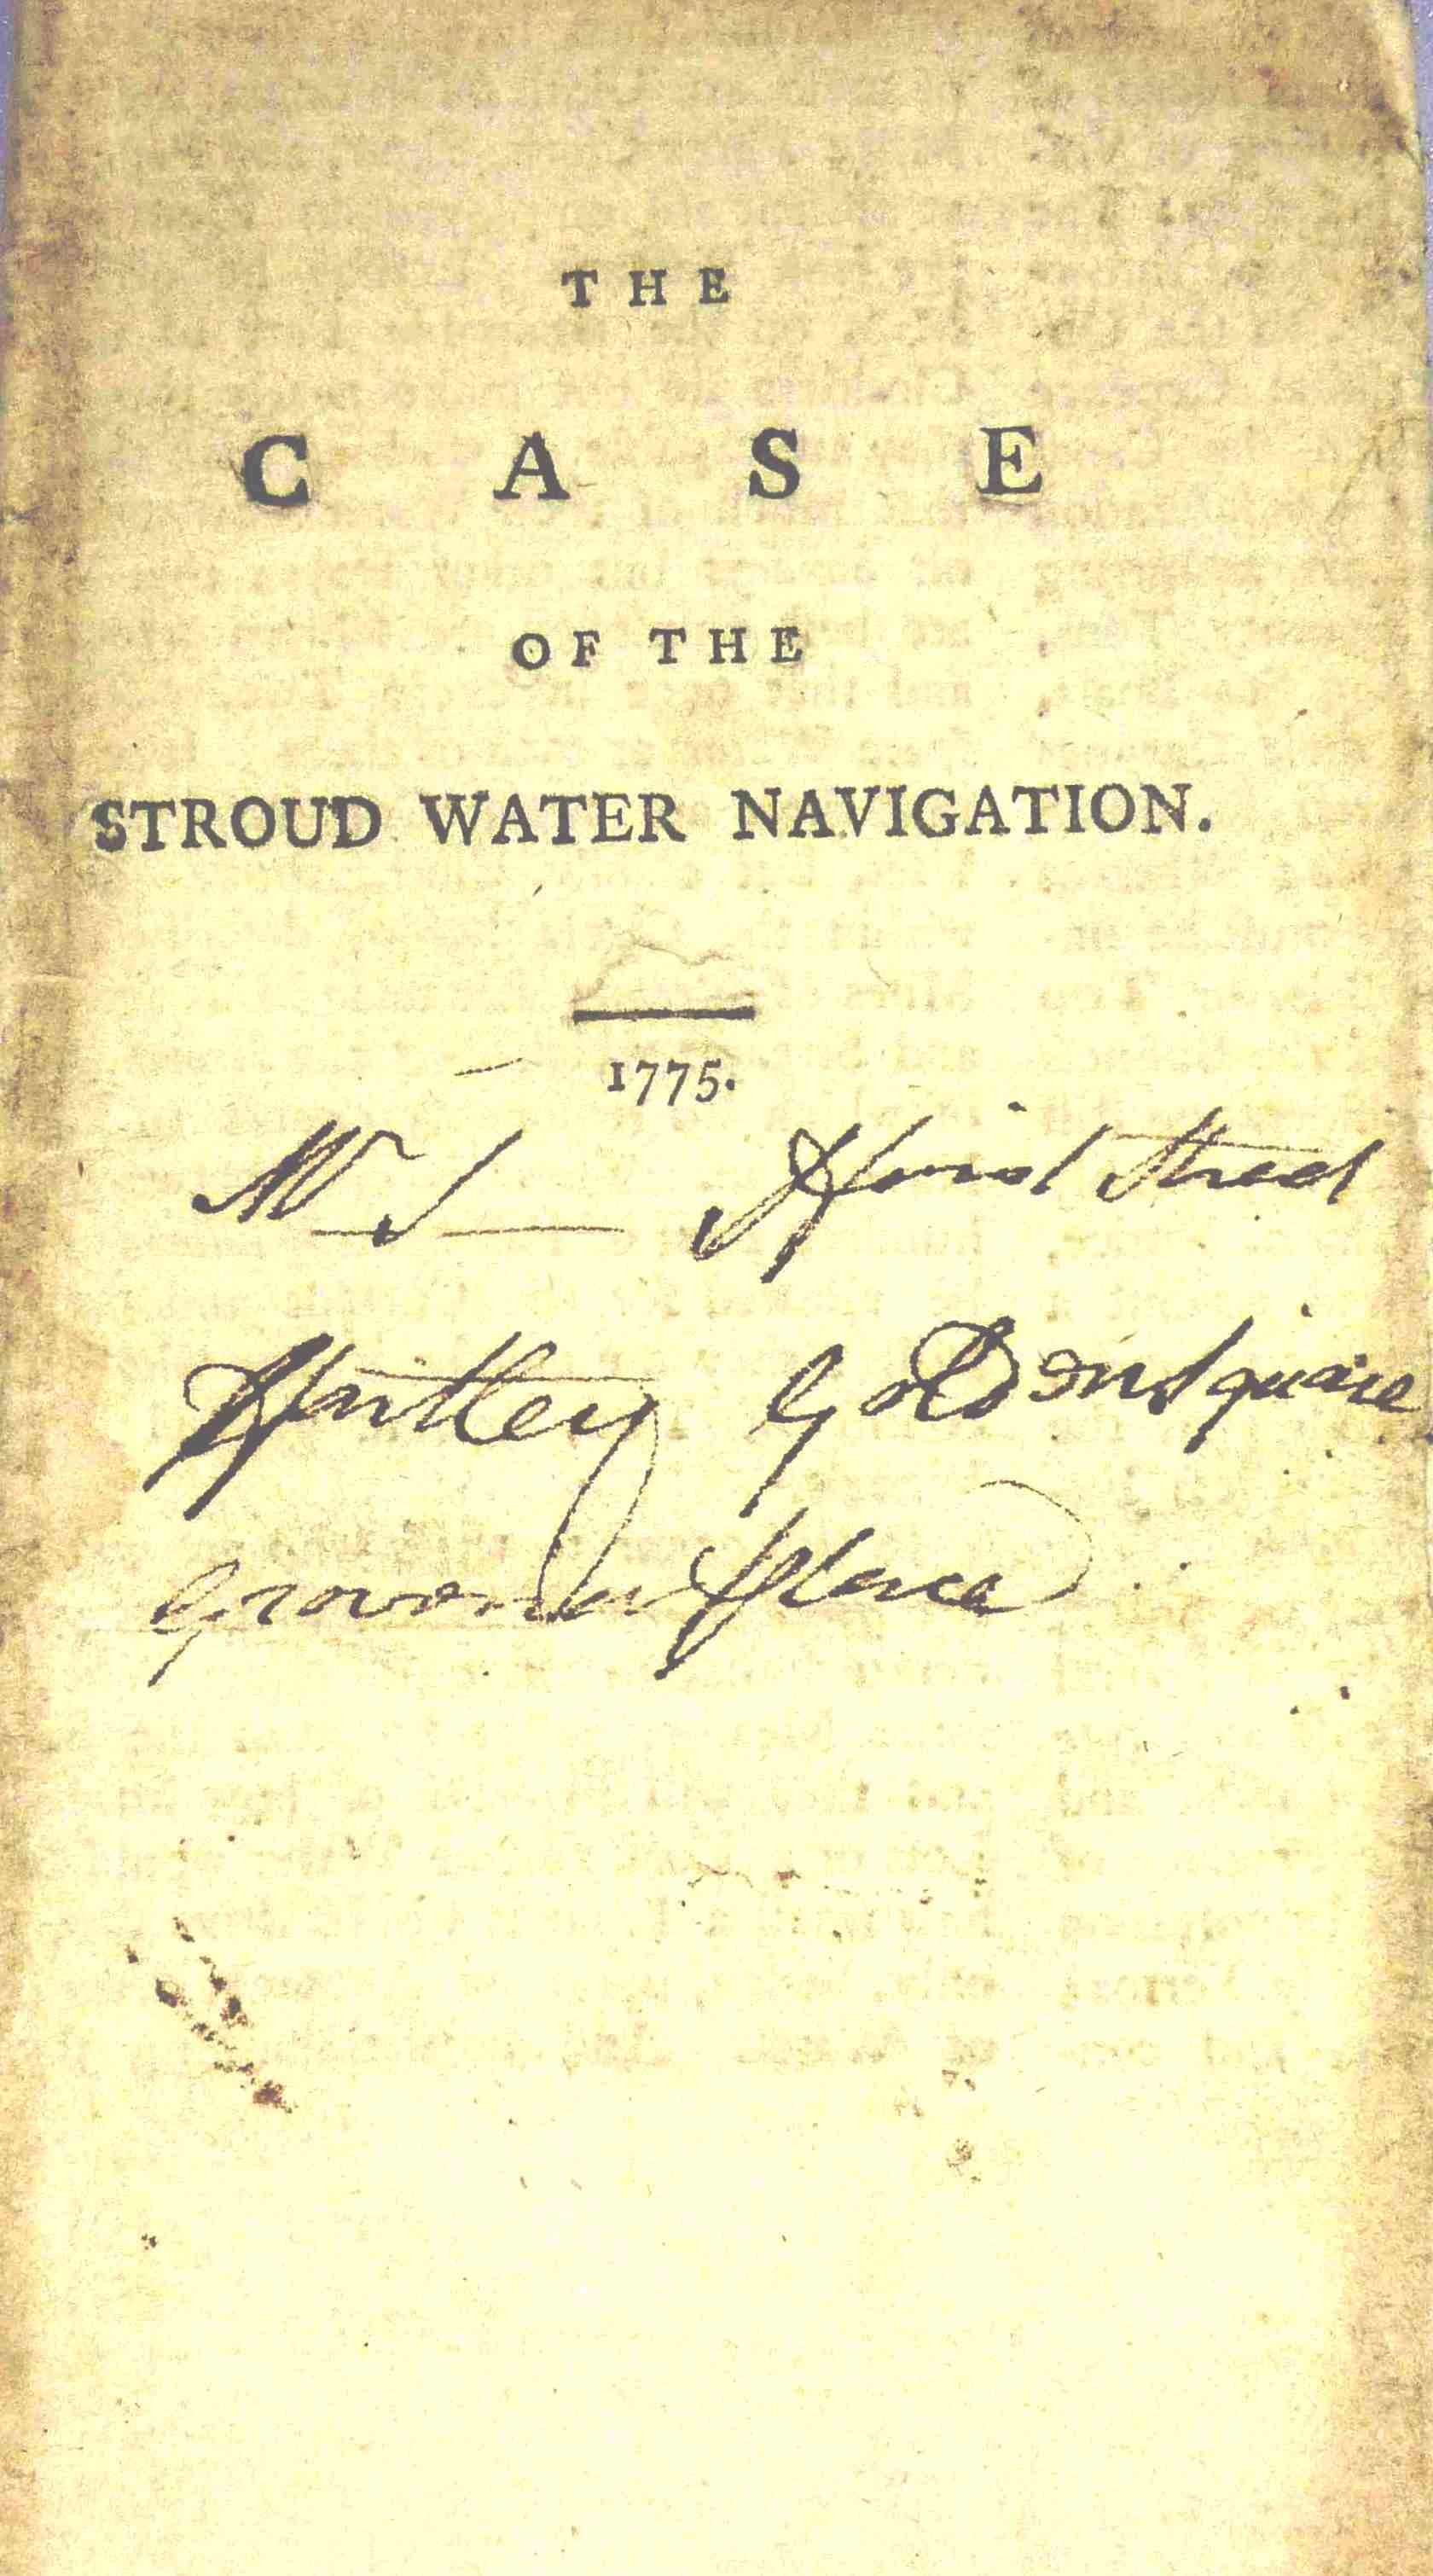 THE
CASE
OF THE
STROUD WATER NAVIGATION.
1775.
Mr J Street
Hartley Golden Square
Grovenor place